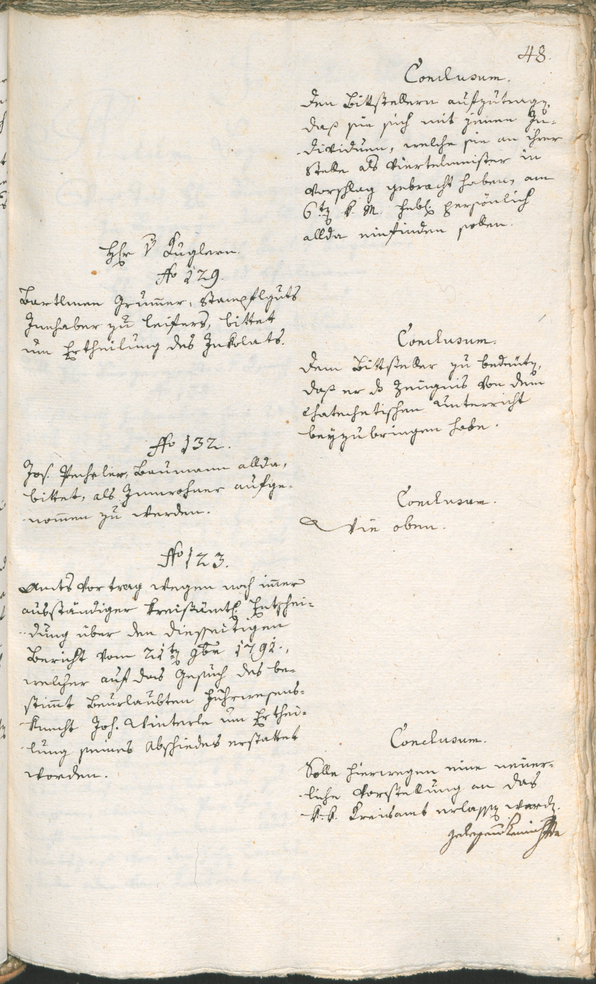 48.
Conclusum.
Den Bittstellern aufzutragen,
daß sie sich mit jenen In-
dividuen, welche sie an ihrer
Stelle als Viertelmeister in
Vorschlag gebracht haben, am
6t k. M. persönlich
allda einfinden sollen.
Hr v Kuglern.
No 129.
Bartlmee Grumer, Stampflguts
Innhaber zu Leifers, bittet
um Ertheilung des Inkolats.
Conclusum.
Dem Bittsteller zu bedeuten,
daß er das Zeugnis von dem
Chatechetischen Unterricht
beyzubringen habe.
No 132.
Jos. Pecheler, Baumann allda,
bittet, als Innwohner aufge-
nommen zu werden.
Conclusum.
Wie oben.
No 123.
Amts Vortrag wegen noch immer
ausständiger kreisämtl Entschei-
dung über den diesseitigen
Bericht vom 21t 9br 1792.,
welcher auf das Gesuch des be-
stimt Beurlaubten Fuhrwesens-
knecht Joh. Winterle um Erthei-
lung seines Abschiedes erstattet
worden.
Conclusum.
Solle hierwegen eine neuer-
liche Vorstellung an das
k. k. Kreisamt erlassen werden.